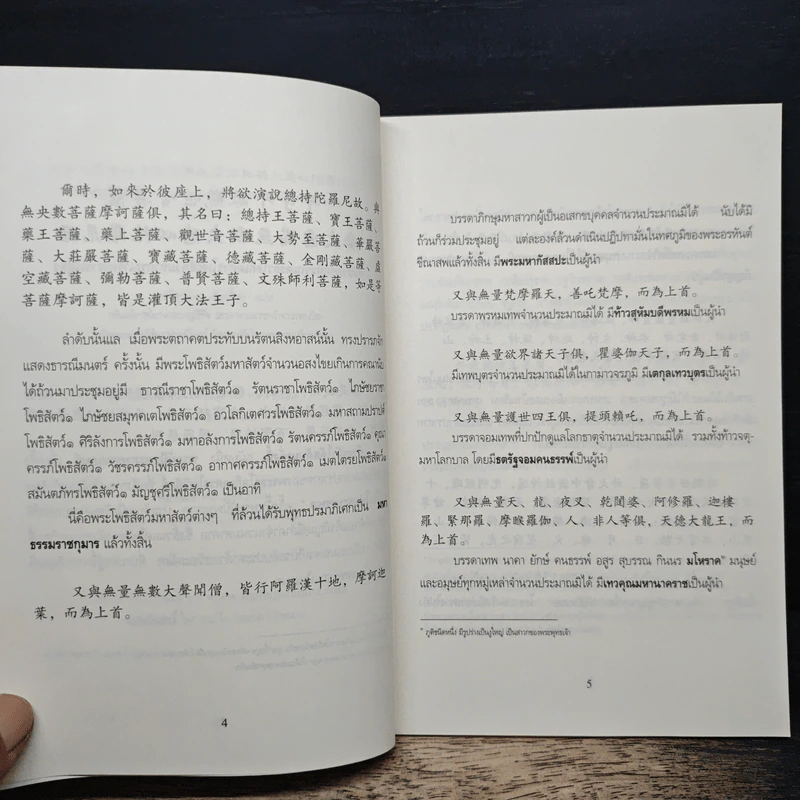 爾時，如來於彼座上，將欲演說總持陀羅尼故。與
無央數菩薩摩訶薩俱，其名曰：總持王菩薩、寶王菩薩、
藥王菩薩、藥上菩薩、觀世音菩薩、大勢至菩薩、華嚴菩
薩、大莊嚴菩薩、寶藏菩薩、德藏菩薩、金剛藏菩薩、虛
空藏菩薩、彌勒菩薩、普賢菩薩、文殊師利菩薩，如是等
菩薩摩訶薩，皆是灌頂大法王子。
ลำดับนั้นแล เมื่อพระตถาคตประทับบนรัตนสิงหอาสน์นั้น ทรงปรารภจัก
แสดงธารณีมนตร์ ครั้งนั้น มีพระโพธิสัตว์มหาสัตว์จำนวนอสงไขยเกินการคณนับ
ได้ถ้วนมาประชุมอยู่มี ธารณีราชาโพธิสัตว์๑ รัตนราชาโพธิสัตว์๑ ไภษัชยราชา
โพธิสัตว์๑ ไภษัชยสมุทคเตโพธิสัตว์๑ อวโลกิเตศวรโพธิสัตว์๑ มหาสถามปราปต์
โพธิสัตว์๑ ศิริลังการโพธิสัตว์๑ มหาอลังการโพธิสัตว์๑ รัตนครรภ์โพธิสัตว์๑ คุณ
ครรภ์โพธิสัตว์๑ วัชรครรภ์โพธิสัตว์๑ อากาศครรภ์โพธิสัตว์๑ เมตไตรยโพธิสัตว์๑
สมันตภัทรโพธิสัตว์๑ มัญชุศรีโพธิสัตว์๑ เป็นอาทิ
นี่คือพระโพธิสัตว์มหาสัตว์ต่างๆ ที่ล้วนได้รับพุทธปรมาภิเศกเป็น มหา
ธรรมราชกุมาร แล้วทั้งสิ้น
又與無量無數大聲聞僧，皆行阿羅漢十地，摩訶迦
葉，而為上首。
4
บรรดาภิกษุมหาสาวกผู้เป็นอเสกขบุคคลจำนวนประมาณมิได้ นับได้มิ
ถ้วนก็ร่วมประชุมอยู่ แต่ละองค์ล้วนดำเนินปฏิปทามั่นในทศภูมิของพระอรหันต์
ขีณาสพแล้วทั้งสิ้น มีพระมหากัสสปะเป็นผู้นำ
又與無量梵摩羅天，善吒梵摩，而為上首。
บรรดาพรหมเทพจำนวนประมาณมิได้ มีท้าวสุหัมบดีพรหมเป็นผู้นำ
又與無量欲界諸天子俱，瞿婆伽天子，而為上首。
มีเทพบุตรจำนวนประมาณมิได้ในกามาวจรภูมิ มีเตกุลเทวบุตรเป็นผู้นำ
又與無量護世四王俱，提頭賴吒，而為上首。
บรรดาจอมเทพที่ปกปักดูแลโลกธาตุจำนวนประมาณมิได้ รวมทั้งท้าวจตุ-
มหาโลกบาล โดยมีธตรัฐจอมคนธรรพ์เป็นผู้นำ
又與無量天、龍、夜叉、乾闥婆、阿修羅、迦樓
羅、緊那羅、摩睺羅伽、人、非人等俱，天德大龍王，而
為上首。
บรรดาเทพ นาคา ยักษ์ คนธรรพ์ อสูร สุบรรณ กินนร มโหราค* มนุษย์
และอมุษย์ทุกหมู่เหล่าจำนวนประมาณมิได้ มีเทวคุณมหานาคราชเป็นผู้นำ
* ภูติชนิดหนึ่ง มีรูปร่างเป็นงูใหญ่ เป็นสาวกของพระพุทธเจ้า
5